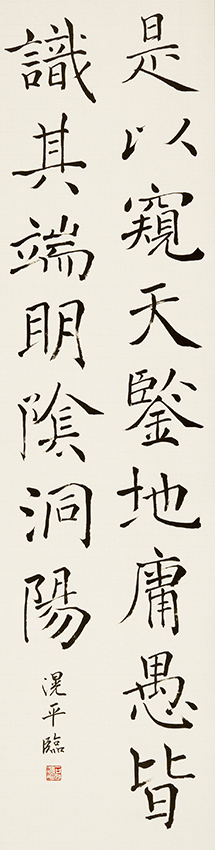 是以窺天鑒地庸愚皆
識其端明陰洞陽
滉平臨